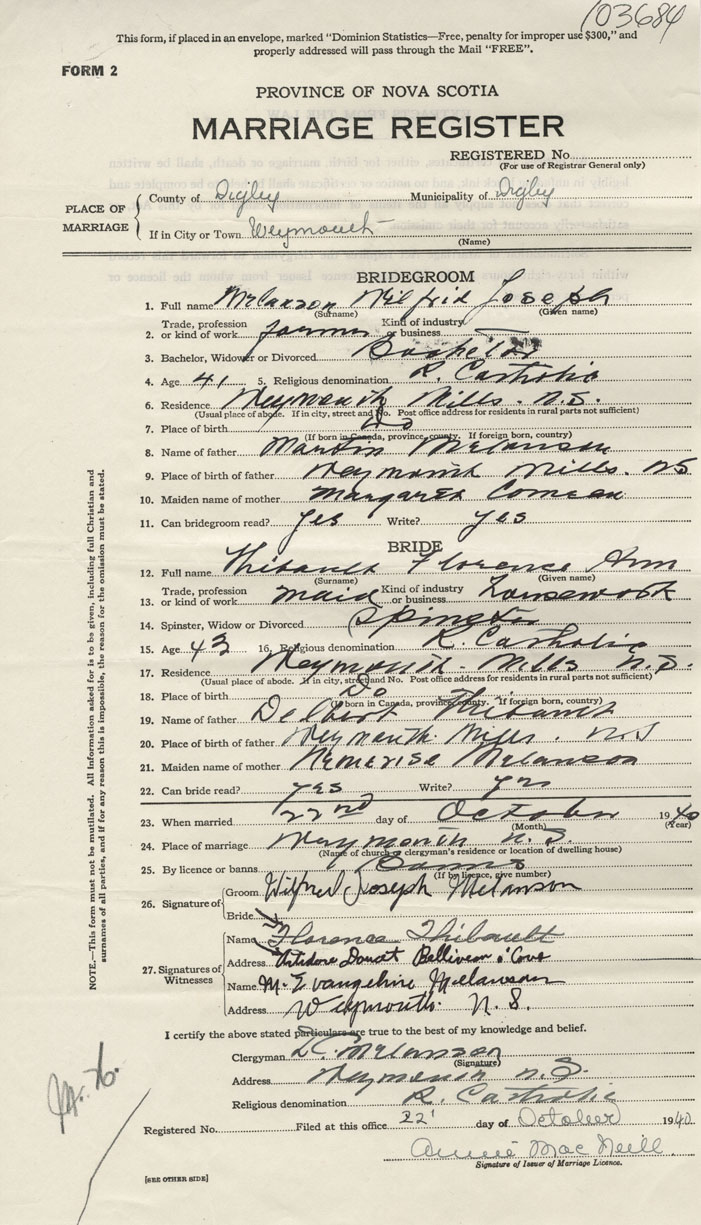 103684
This form, if placed in an envelope, marked "Dominion Statistics—Free, penalty for improper use $300," and
properly addressed will pass through the Mail "FREE".
FORM 2
PROVINCE OF NOVA SCOTIA
MARRIAGE REGISTER
REGISTERED No.
(For use of Registrar General only)
PLACE OF MARRIAGE
County of Digby Municipality of Digby
If in City or Town Weymouth
(Name)
BRIDEGROOM
1. Full name Melanson Wilfrid Joseph
(Surname) (Given name)
2. Trade, profession or kind of work farmer Kind of industry or business
3. Bachelor, Widower or Divorced Bachelor
4. Age 41 5. Religious denomination R. Catholic
6. Residence Weymouth Mills. N.S.
(Usual place of abode. If in city, street and No. Post office address for residents in rural parts not sufficient)
7. Place of birth Do
(If born in Canada, province, county. If foreign born, country)
8. Name of father Martin Melanson
9. Place of birth of father Weymouth Mills. NS
10. Maiden name of mother Margaret Comeau
11. Can bridegroom read? yes Write? yes
BRIDE
12. Full name Thibault Florence Ann
(Surname) (Given name)
13. Trade, profession or kind of work maid Kind of industry or business housework
14. Spinster, Widow or Divorced Spinster
15. Age 43 16. Religious denomination R. Catholic
17. Residence Weymouth Mills N.S.
(Usual place of abode. If in city, street and No. Post office address for residents in rural parts not sufficient)
18. Place of birth Do
(If born in Canada, province, county. If foreign born, country)
19. Name of father Delbert Thibault
20. Place of birth of father Weymouth Mills. N.S
21. Maiden name of mother Melanson
22. Can bride read? yes Write? yes
23. When married 22nd day of October 1940
(Month) (Year)
24. Place of marriage Weymouth N.S.
(Name of church or clergyman's residence or location of dwelling house)
25. By licence or banns Banns
(If by licence, give number)
26. Signature of
Groom Wilfred Joseph Melanson
Bride
27. Signatures of Witnesses
Name Florence Thibault
Address Doucet Belliveau's Cove
Name M. Evangeline Melanson
Address Weymouth. N.S.
I certify the above stated particulars are true to the best of my knowledge and belief.
Clergyman Melanson
(Signature)
Address Weymouth N.S.
Religious denomination R. Catholic
Registered No. Filed at this office 22 day of October 1940
Annie Mac Neill
Signature of Issuer of Marriage Licence.
[SEE OTHER SIDE]
NOTE.—This form must not be mutilated. All information asked for is to be given, including full Christian and
surnames of all parties, and if for any reason this is impossible, the reason for the omission must be stated.